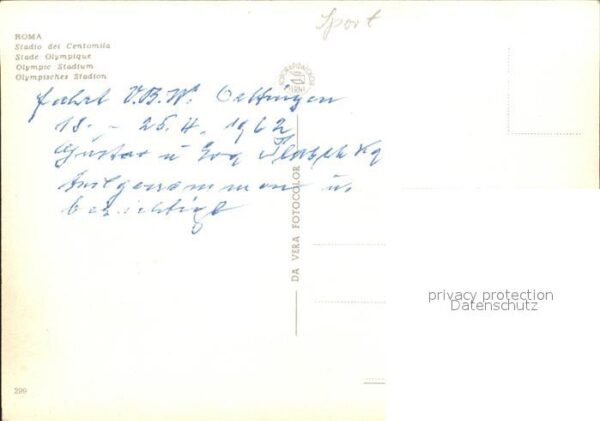 Sport
ROMA
Stadio dei Centomila
Stade Olympique
Olympic Stadium
Olympisches Stadion
fahrt V.B.W. Oettingen
18. - 25.4. 1962
Gustav u
teilgenommen u.
besichtigt
DA VERA FOTOCOLOR
privacy protection
Datenschutz
299